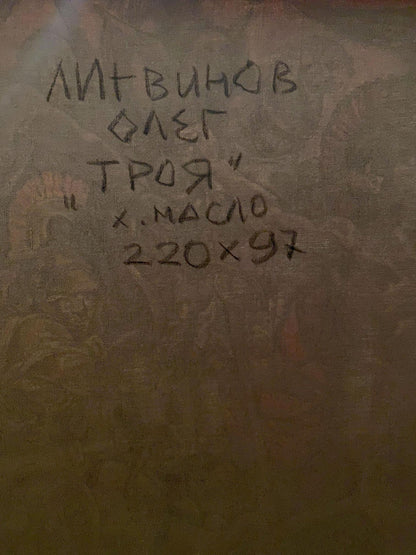 ЛИТВИНОВ
ОЛЕГ
"ТРОЯ"
Х. МАСЛО
220х97